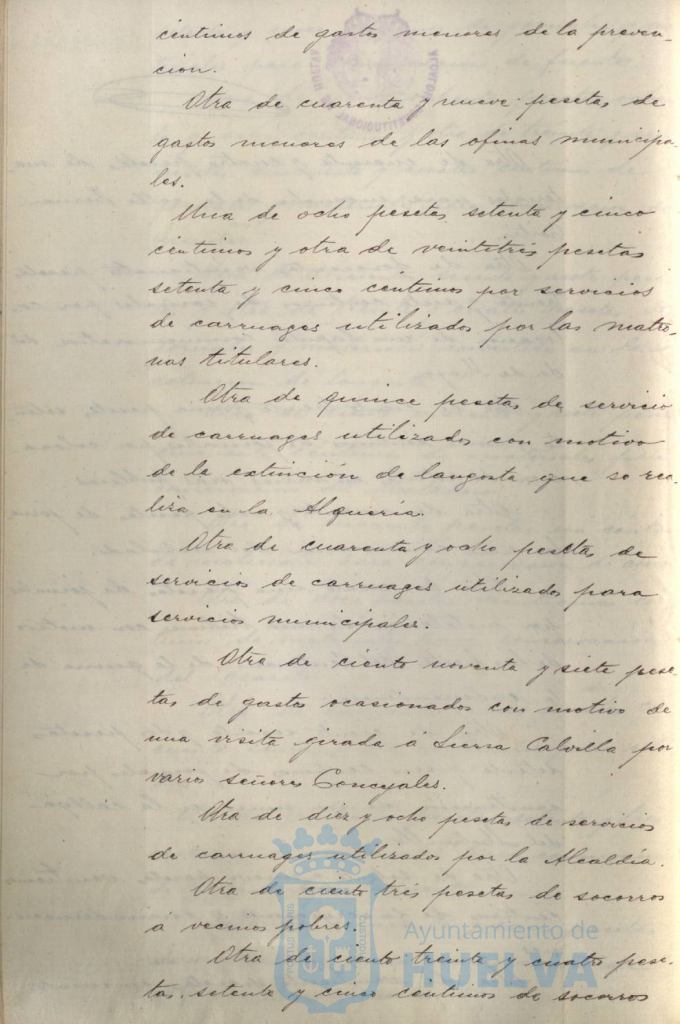 centimos de gastos menores de la preven-
cion.
Otra de cuarenta y nueve pesetas de
gastos menores de las ofinas municipa-
les.
Una de ocho pesetas setenta y cinco
centimos y otra de veintitres pesetas
setenta y cinco centimos por servicios
de carruages utilizados por las matro-
nas titulares.
Otra de quince pesetas de servicio
de carruages utilizados con motivo
de la extinción de langosta que se rea-
liza en la Alquería.
Otra de cuarenta y ocho pesetas de
servicios de carruages utilizados para
servicios municipales.
Otra de ciento noventa y siete pese-
tas de gastos ocasionados con motivo de
una visita girada á Sierra Calvilla por
varios señores Concejales.
Otra de diez y ocho pesetas de servicios
de carruages utilizados por la Alcaldía.
Otra de ciento tres pesetas de socorros
á vecinos pobres.
Otra de ciento treinta y cuatro pese-
tas, setenta y cinco centimos de socorros
Ayuntamiento de
HUELVA